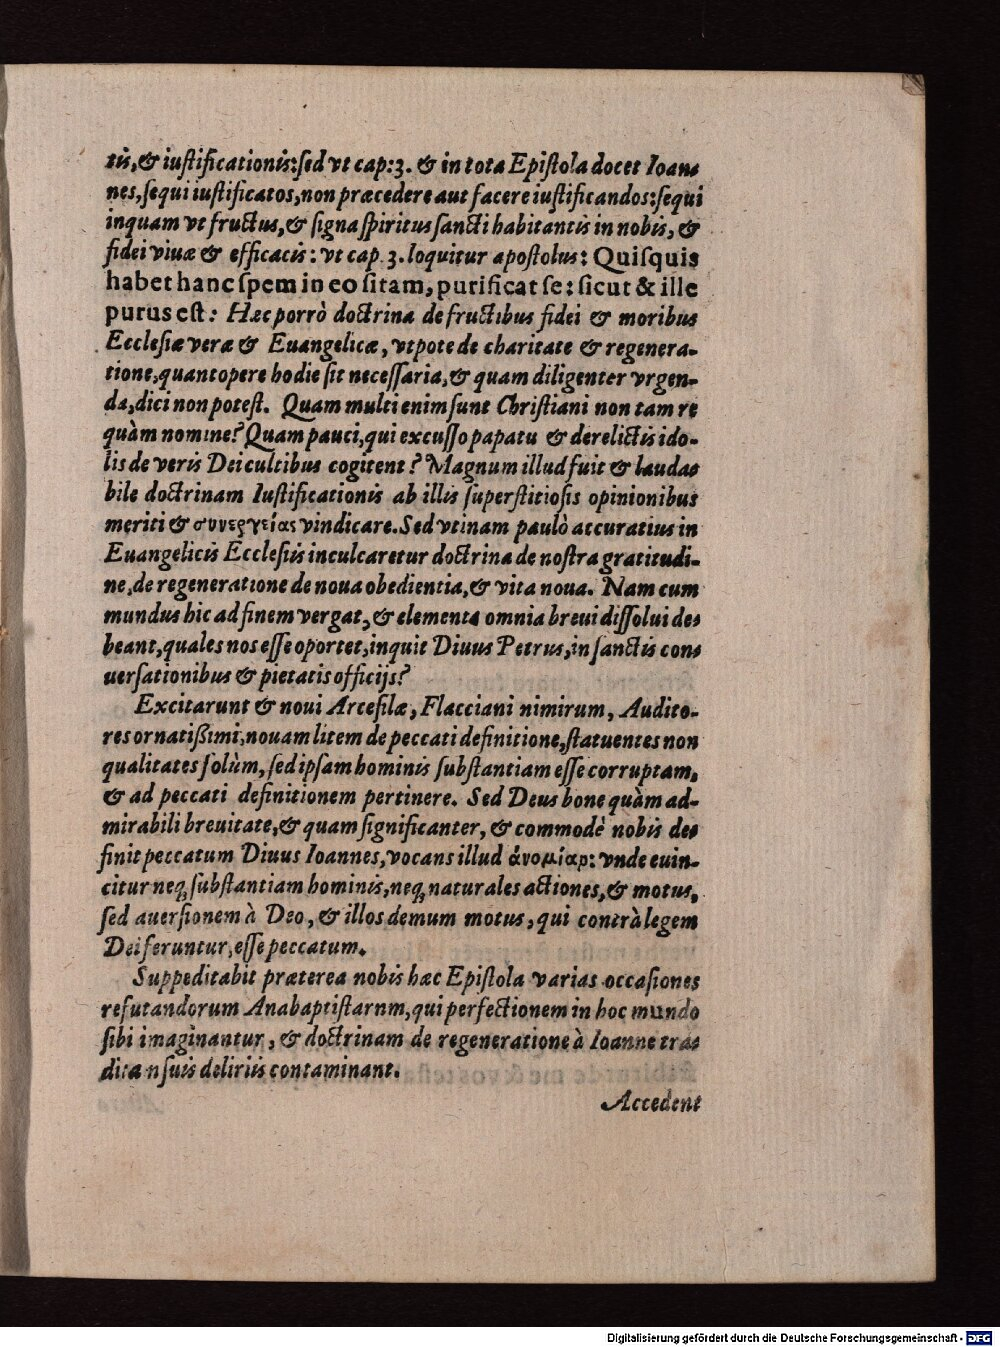 tis,& iustificationis:sed vt cap:3. & in tota Epistola docet Ioan-
nes,sequi iustificatos,non præcedere aut facere iustificandos:sequi
inquam vt fructus,& signa spiritus sancti habitantis in nobis, &
fidei viuæ & efficacis: vt cap. 3. loquitur apostolus: Quisquis
habet hanc spem in eo sitam, purificat se: sicut & ille
purus est: Hæc porrò doctrina de fructibus fidei & moribus
Ecclesiæ veræ & Euangelicæ, vtpote de charitate & regenera-
tione,quantopere hodie sit necessaria,& quam diligenter vrgen-
da,dici non potest. Quam multi enim sunt Christiani non tam re
quàm nomine? Quam pauci,qui excusso papatu & derelictis ido-
lis de veris Dei cultibus cogitent? Magnum illud fuit & lauda-
bile doctrinam Iustificationis ab illis superstitiosis opinionibus
meriti & συνεργείας vindicare. Sed vtinam paulò accuratius in
Euangelicis Ecclesiis inculcaretur doctrina de nostra gratitudi-
ne,de regeneratione de noua obedientia,& vita noua. Nam cum
mundus hic ad finem vergat,& elementa omnia breui dissolui de-
beant,quales nos esse oportet,inquit Diuus Petrus,in sanctis con-
uersationibus & pietatis officijs?
Excitarunt & noui Arcesilæ, Flacciani nimirum, Audito-
res ornatißimi,nouam litem de peccati definitione,statuentes non
qualitates solùm, sed ipsam hominis substantiam esse corruptam,
& ad peccati definitionem pertinere. Sed Deus bone quàm ad-
mirabili breuitate,& quam significanter, & commodè nobis de-
finit peccatum Diuus Ioannes,vocans illud ἀνομίαρ: vnde euin-
citur neq; substantiam hominis,neq; naturales actiones,& motus,
sed auersionem à Deo, & illos demum motus, qui contrà legem
Dei feruntur,esse peccatum.
Suppeditabit præterea nobis hæc Epistola varias occasiones
refutandorum Anabaptistarnm,qui perfectionem in hoc mundo
sibi imaginantur, & doctrinam de regeneratione à Ioanne tra-
dita n suis deliriis contaminant.
Accedent
Digitalisierung gefördert durch die Deutsche Forschungsgemeinschaft - DFG